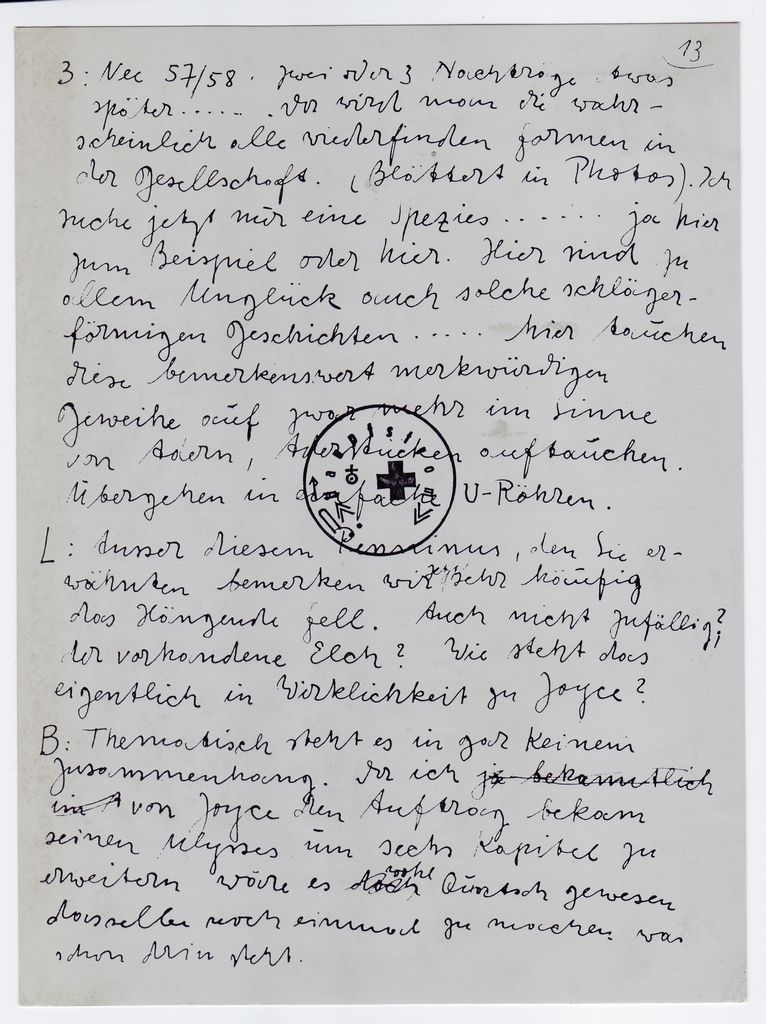 13
B: Nee 57/58. zwei oder 3 Nachträge etwas
später...... Da wird man die wahr-
scheinlich alle wiederfinden formen in
der Gesellschaft. (Blättert in Photos). Ich
suche jetzt nur eine Spezies ...... ja hier
zum Beispiel oder hier. Hier sind zu
allem Unglück auch solche schläger-
förmigen Geschichten ..... hier tauchen
diese bemerkenswert merkwürdigen
Geweihe auf zwar mehr im Sinne
von Adern, Aderstücken auftauchen.
Übergehen in einfache U-Röhren.
L: Ausser diesem, den Sie er-
wähnten bemerken wir sehr häufig
das Hängende Fell. Auch nicht zufällig?
der vorhandene Elch? Wie steht das
eigentlich in Wirklichkeit zu Joyce?
B: Thematisch steht es in gar keinem
Zusammenhang. Da ich ja bekanntlich
im von Joyce den Auftrag bekam
seinen Ulysses um sechs Kapitel zu
erweitern wäre es doch wohl Quatsch gewesen
dasselbe noch einmal zu machen was
schon drin steht.